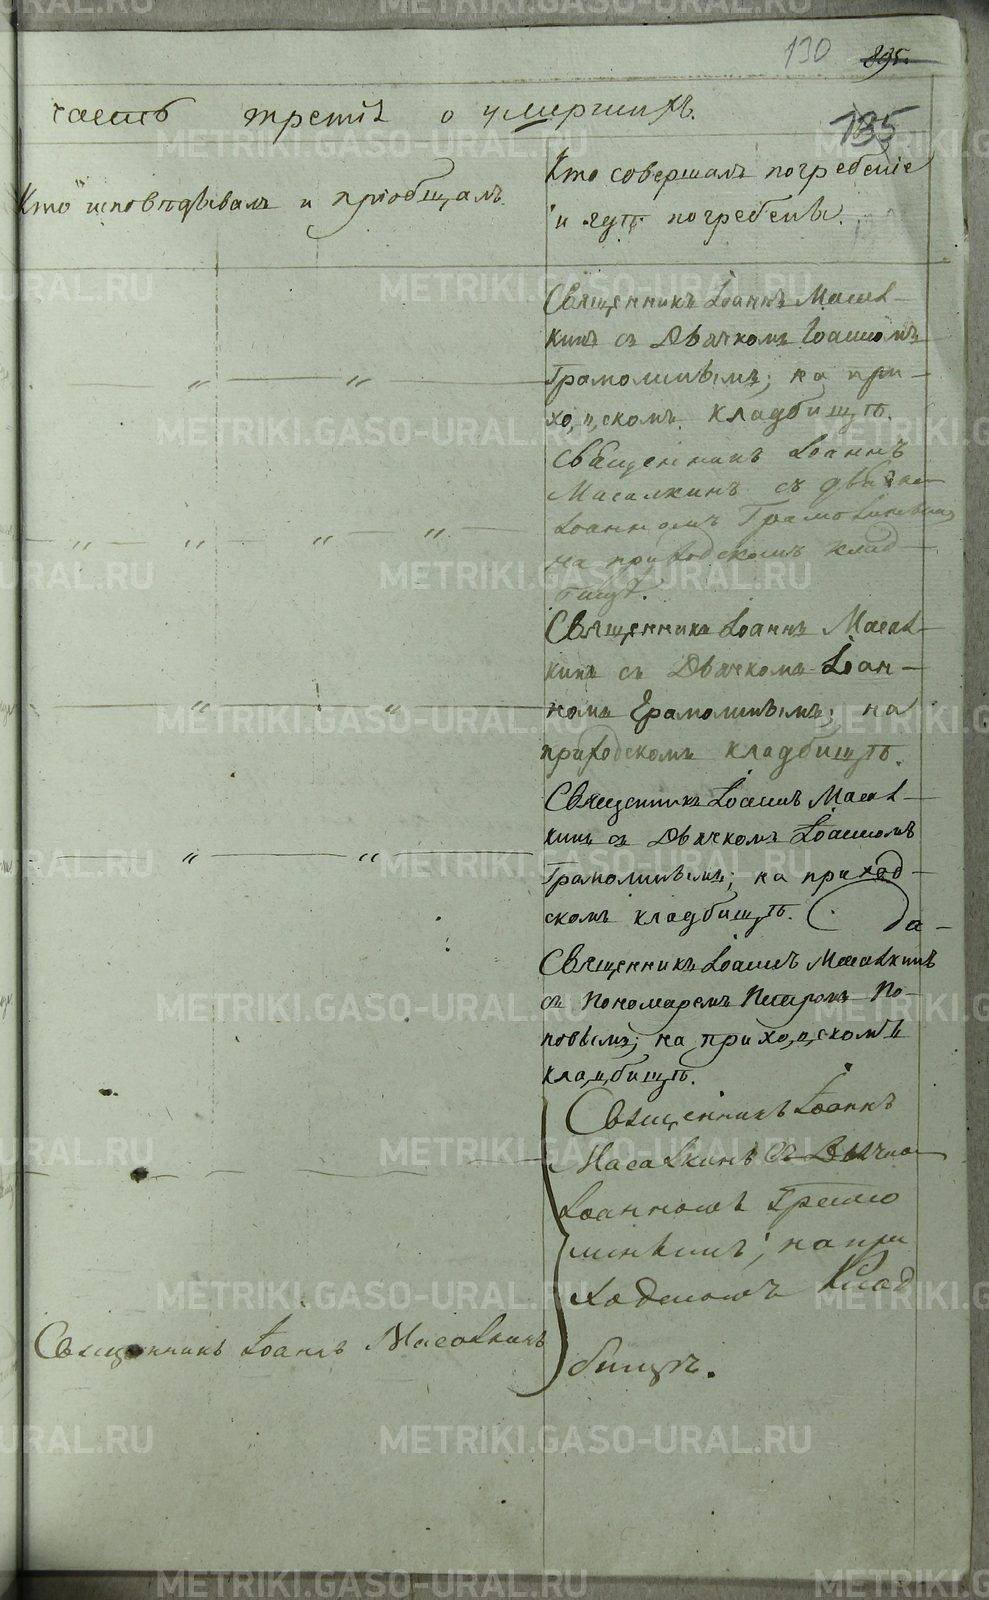 130 895.
часть третія о умершихъ.
135
Кто исповѣдывалъ и пріобщалъ.
Кто совершалъ погребеніе
и гдѣ погребены.
Священникъ Іоаннъ Масал-
кинъ съ Дьячкомъ Іоанномъ
Грамолинымъ; на при-
ходскомъ кладбищѣ.
Священникъ Іоаннъ
Масалкинъ съ дьячко
Іоанномъ Грамолинымъ
на приходскомъ клад-
бищѣ.
Священникъ Іоаннъ Масал-
кинъ съ Дьячкомъ Іоан-
номъ Грамолинымъ; на
приходскомъ кладбищѣ.
Священникъ Іоаннъ Масал-
кинъ съ Дьячкомъ Іоанномъ
Грамолинымъ; на приход-
скомъ кладбищѣ. Да-
Священникъ Іоаннъ Масалкинъ
съ Пономаремъ Петромъ По-
повымъ; на приходскомъ
кладбищѣ.
Священникъ Іоаннъ
Масалкинъ съ Дьячко
Іоанномъ Грамо
линымъ; на при
ходскомъ Клад
бищѣ.
Священникъ Іоаннъ Масалкинъ
METRIKI.GASO-URAL.RU